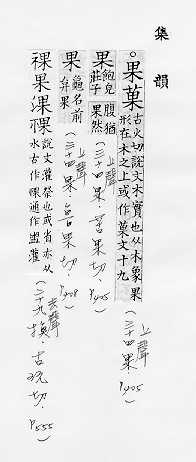 集韻
。果菓 古火切說文木實也从木象果形在木之上或作菓文十九 (上聲 三十四果.P405)
果 飽皃莊子腹猶果然 (上聲 三十四果.苦果切.P405)
果 龜名前弇果 (上聲 三十四果.魯果切.P408)
祼果淉䙺 說文灌祭也或省亦从水古作䙺通作盥灌 (去聲 二十九換.古玩切.P555)